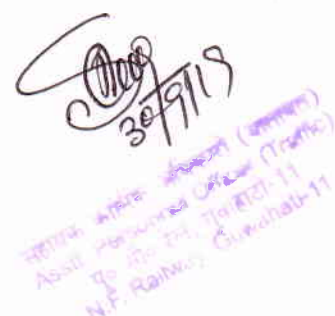 30/9/19
सहायक कार्मिक अधिकारी (यातायात)
Asstt Personnel Officer (Traffic)
पू० सी० रेल, गुवाहाटी-11
N.F. Railway Guwahati-11